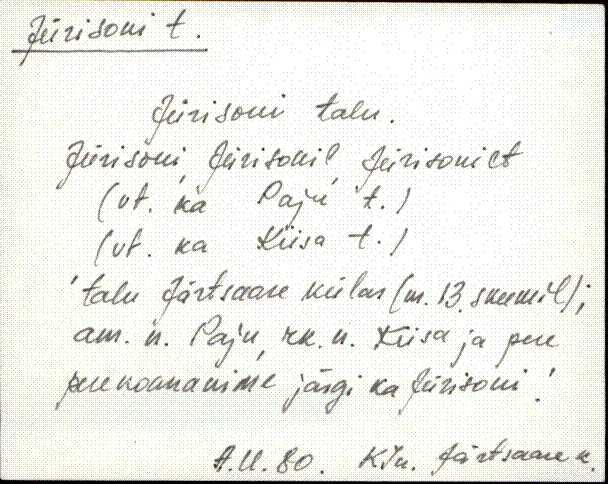 Jürisoni t.
Jürisoni talu.
Jürisoni, Jürisonil, Jürisonilt
(vt. ka Paju t.)
(vt. ka Kiisa t.)
'talu Järtsaare külas (m. 13. skeemil);
am. n. Paju, rk. n. Kiisa ja pere
perekonnanime järgi ka Jürisoni.'
A.U. 80. KJn. Järtsaare k.